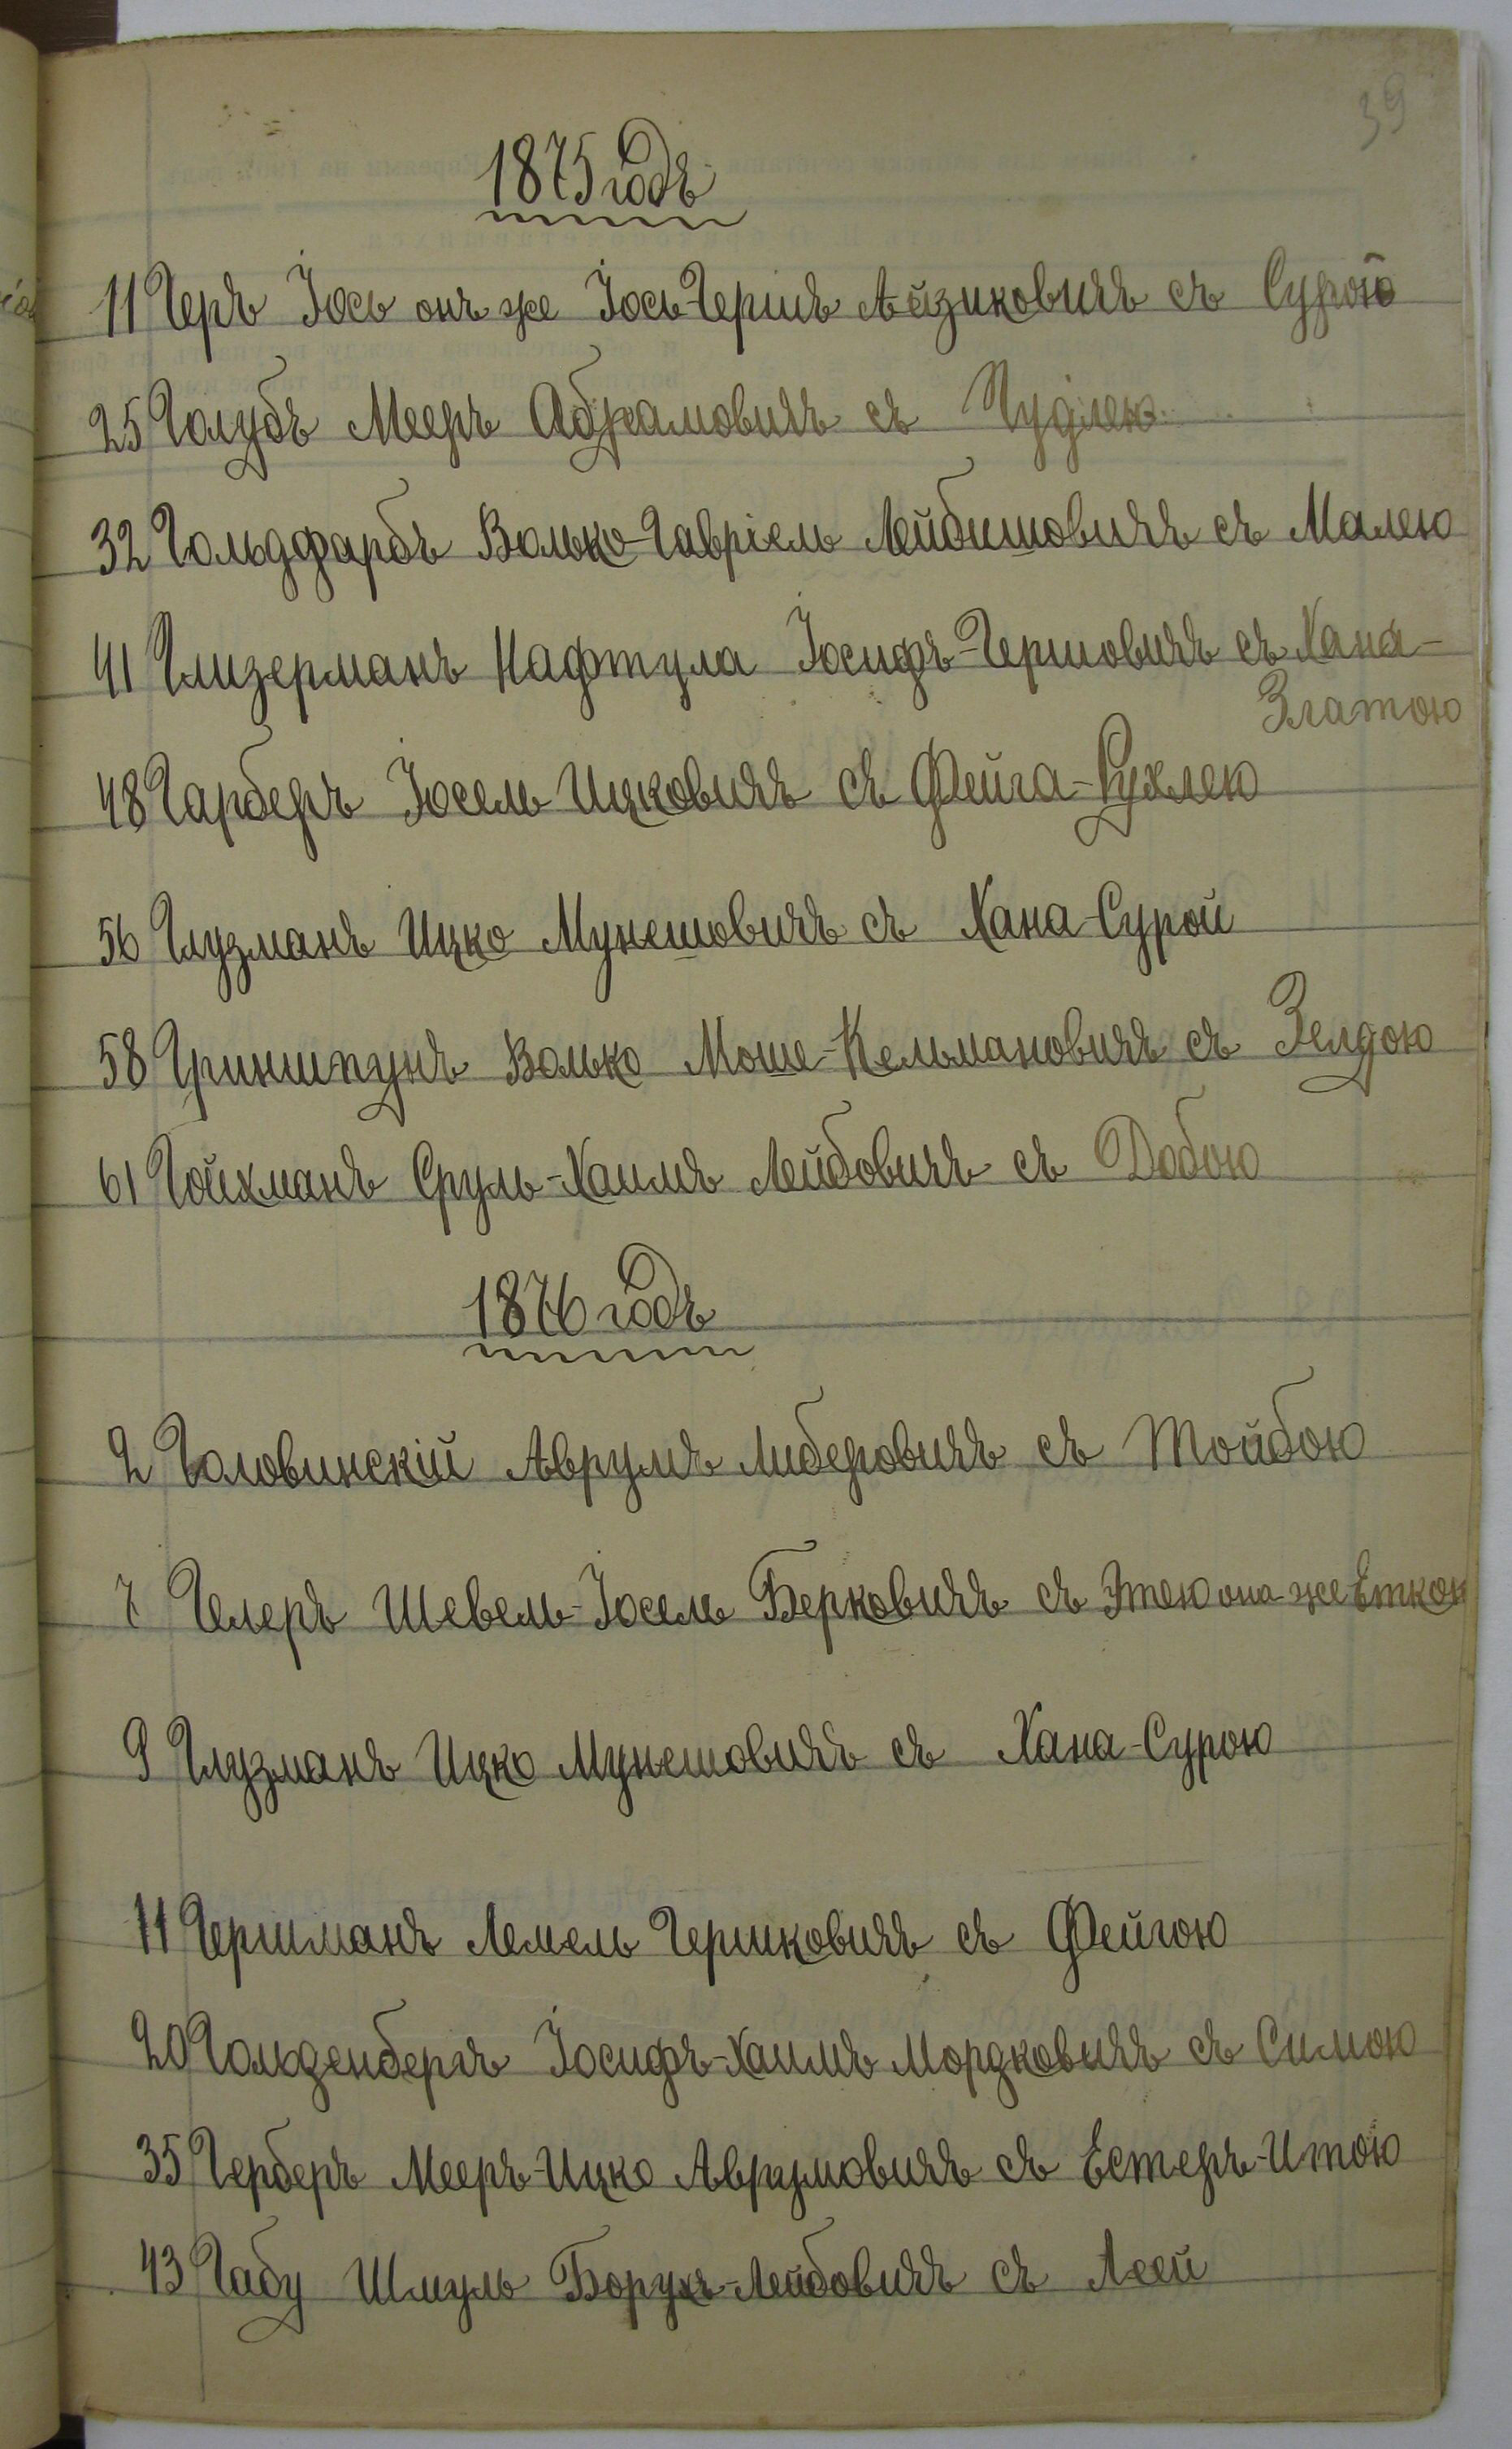 39
1875 годъ
11 Геръ Іось онъ же Іось-Гершъ Айзиковичъ съ Сурою
25 Голубъ Мееръ Абрамовичъ съ
32 Гольдфарбъ Волько-Гавріель Лейбишовичъ съ Малею
41 Глизерманъ Нафтула Іосифъ-Гершовичъ съ Хана-
Златою
48 Гарберъ Іосель Ицковичъ съ Фейга-Рухлею
56 Глузманъ Ицко Мунешовичъ съ Хана-Сурой
58 Гриншпунъ Волько Моше-Кельмановичъ съ Зелдою
61 Гойхманъ Сруль-Хаимъ Лейбовичъ съ Добою
1876 годъ
2 Головинскій Аврумъ Либеровичъ съ Тойбою
7 Гелеръ Шевель-Іосель Берковичъ съ Этею она-же Еткою
9 Глузманъ Ицко Мунешовичъ съ Хана-Сурою
11 Гершманъ Лемель Гершковичъ съ Фейгою
20 Гольденбергъ Іосифъ-Хаимъ Мордковичъ съ Симою
35 Герберъ Мееръ-Ицко Аврумовичъ съ Естеръ-Итою
43 Габу Шмуль Борухъ-Лейбовичъ съ Леей